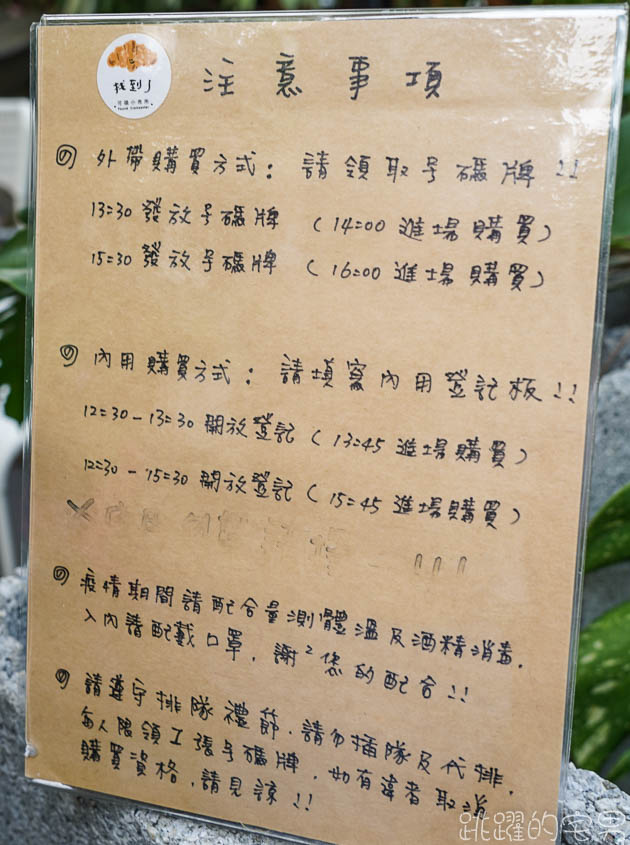 找到J
可頌小売所
注意事項
外帶購買方式：請領取号碼牌!!
13:30 發放号碼牌 (14:00 進場購買)
15:30 發放号碼牌 (16:00 進場購買)
內用購買方式：請填寫內用登記板!!
12:30-13:30 開放登記 (13:45 進場購買)
12:30-15:30 開放登記 (15:45 進場購買)
疫情期間請配合量測體溫及酒精消毒.
入內請配戴口罩,謝²您的配合!!
請遵守排隊禮節,請勿插隊及代排,
每人限領1張号碼牌,如有違者取消
購買資格,請見諒!!
跳躍的宅男